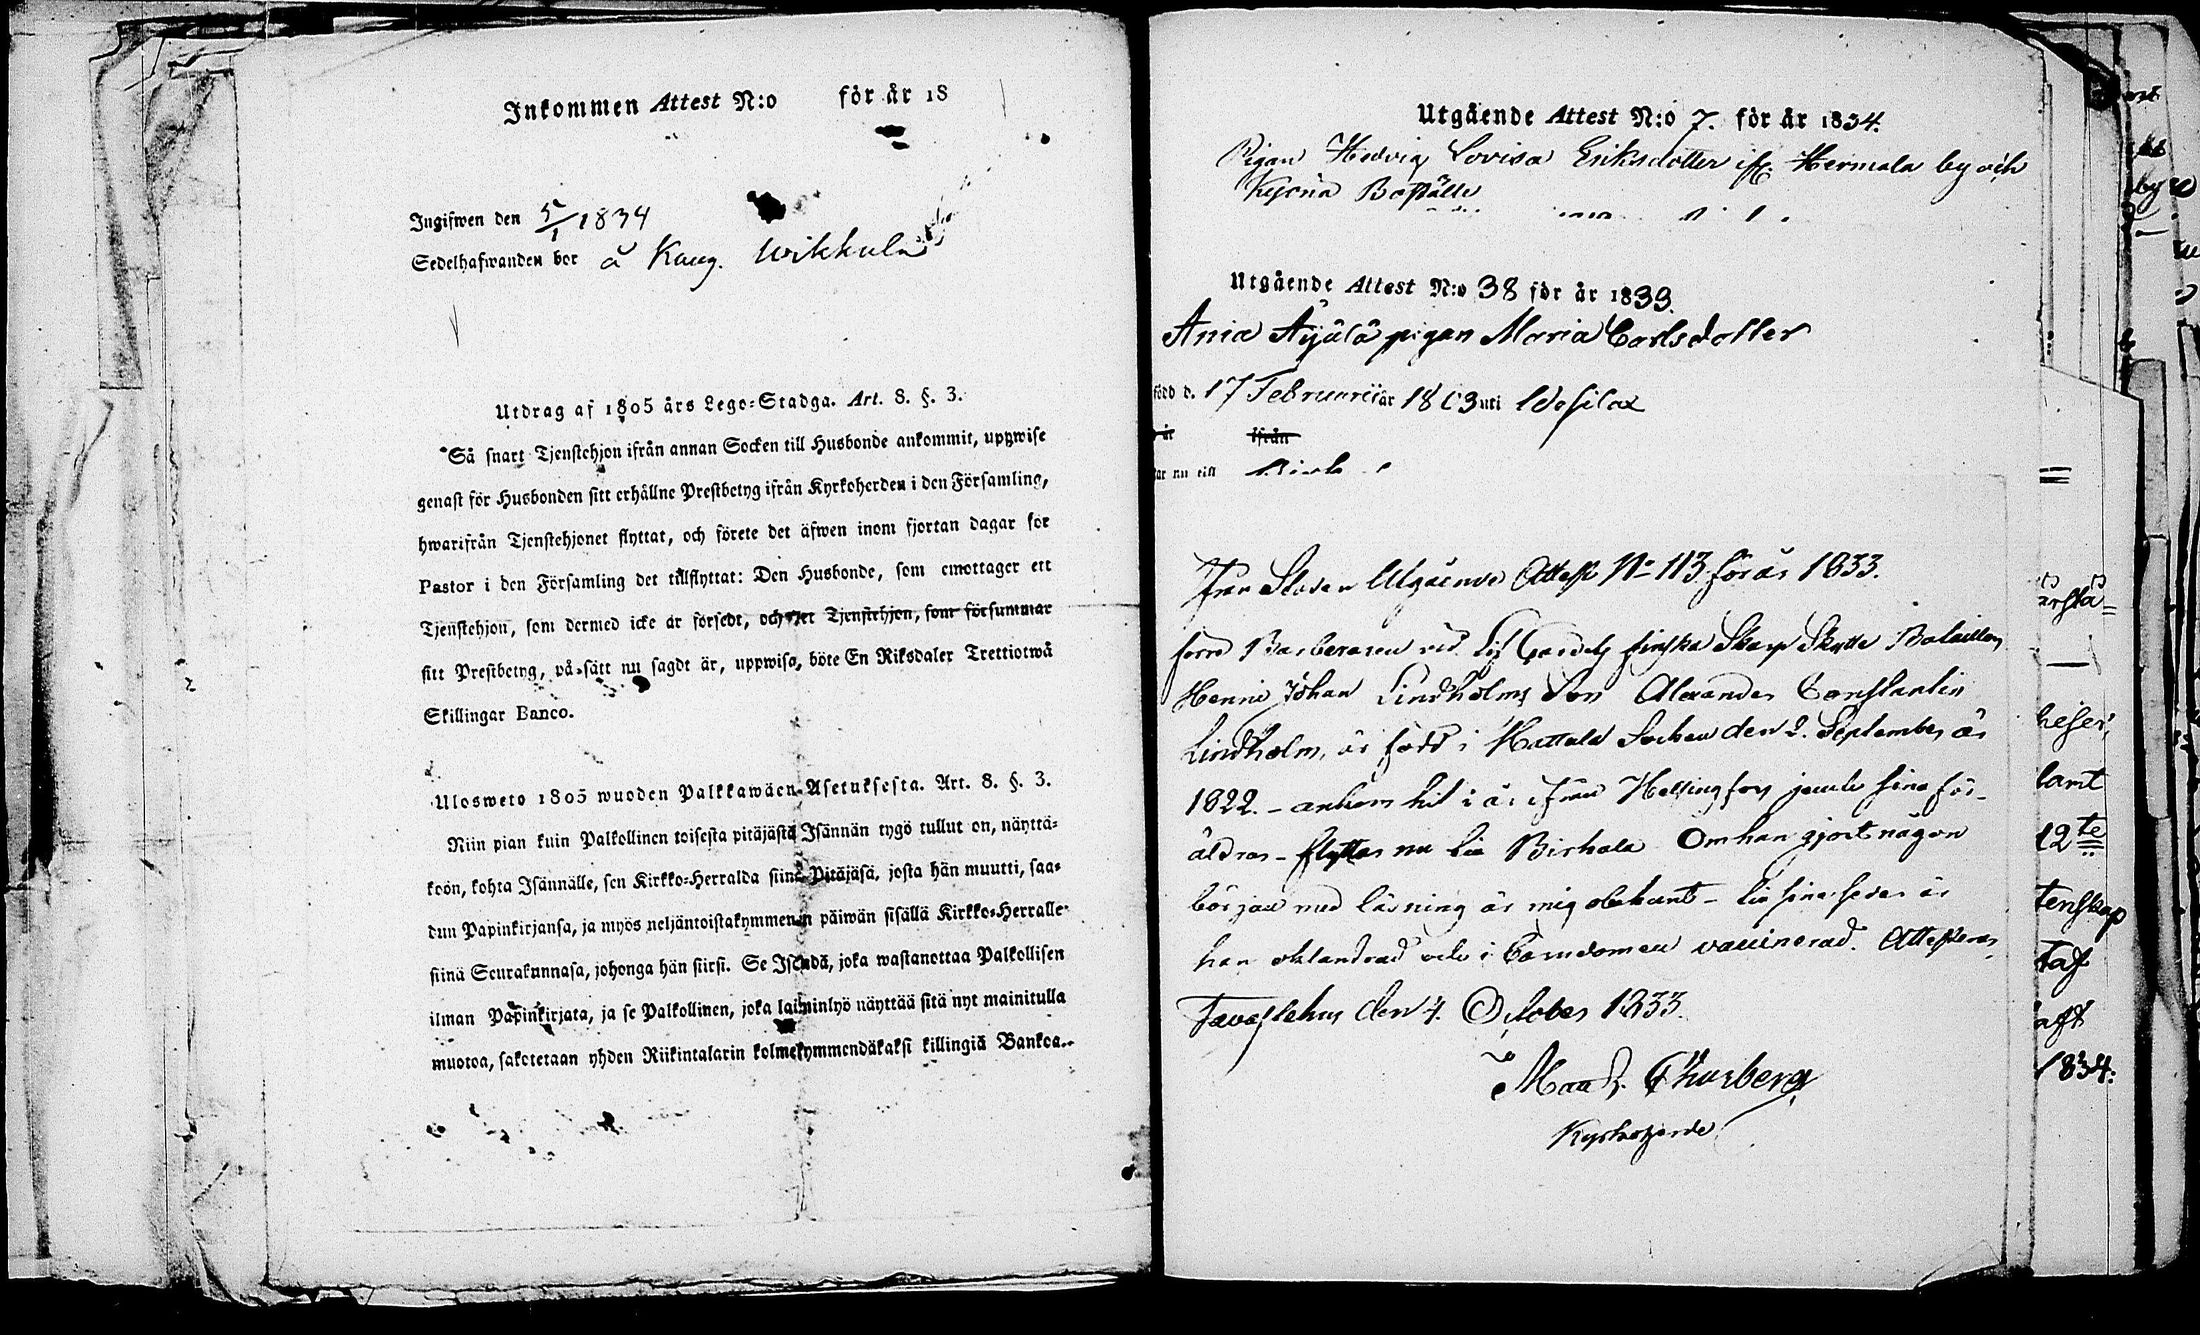 Inkommen Attest N:o för år 18
Ingifwen den 5/1 1834
Sedelhafwanden bor å Kaug. Wikkula
Utdrag af 1805 års Lego-Stadga. Art. 8. §. 3.
Så snart Tjenstehjon ifrån annan Socken till Husbonde ankommit, uppwise
genast för Husbonden sitt erhållne Prestbetyg ifrån Kyrkoherden i den Församling,
hwarifrån Tjenstehjonet flyttat, och förete det äfwen inom fjortan dagar för
Pastor i den Församling det tillflyttat: Den Husbonde, som emottager ett
Tjenstehjon, som dermed icke är försedt, och det Tjenstehjon, som försummar
sitt Prestbetyg, på sätt nu sagdt är, uppwisa, böte En Riksdaler Trettiotwå
Skillingar Banco.
Ulosweto 1805 wuoden Palkkawäen Asetuksesta. Art. 8. §. 3.
Niin pian kuin Palkollinen toisesta pitäjästä Isännän tygö tullut on, näyttä-
köön, kohta Isännälle, sen Kirkko-Herralda siinä Pitäjäsä, josta hän muutti, saa-
dun Papinkirjansa, ja myös neljäntoistakymmenen päiwän sisällä Kirkko-Herralle
siinä Seurakunnasa, johonga hän siirsi. Se Isändä, joka wastanottaa Palkollisen
ilman Papinkirjata, ja se Palkollinen, joka laiminlyö näyttää sitä nyt mainitulla
muotoa, sakotetaan yhden Riikintalarin kolmekymmendäkaksi killingiä Bankoa.
Utgående Attest N:o 7. för år 1834.
Pigan Hedvig Lovisa Eriksdotter ifr. Hermala by och
Boställe
Utgående Attest N:o 38 för år 1833.
Äjälä pigan Maria Carlsdotter
född d. 17 Februarii år 1803 uti
ifrån
ar nu till
Utgående Attest No 113 för år 1833.
förre Barberaren vid Lif Gardets finska Skarp Skytte Bataillon
Henric Johan Lindholms Son Alexander Constantin
Lindholm, är född i Hattula Socken den 2. September år
1822. - ankom hit i år ifrån Helsingfors jemte sina för-
äldrar - flyttar nu till Birkala Om han gjort någon
början med läsning är mig obekant - till sina seder är
han oklandrad och i barndomen vaccinerad. Attesteras
Tavastehus den 4. October 1833.
Thurberg
Kyrkoherde
12te
tenskap
1834: